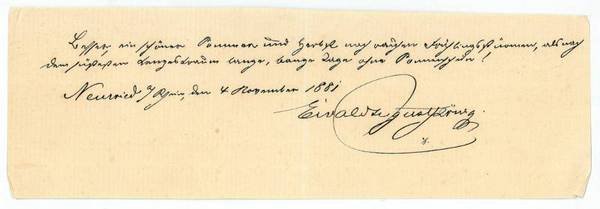 Besser, ein schöner Sommer und Herbst nach rauhen Frühlingsstürmen, als nach
dem süßesten Lenzestraum lange, bange Tage ohne Sonnenschein!
Neuwied a/Rhein, den 4 November 1881
Ewald August König.